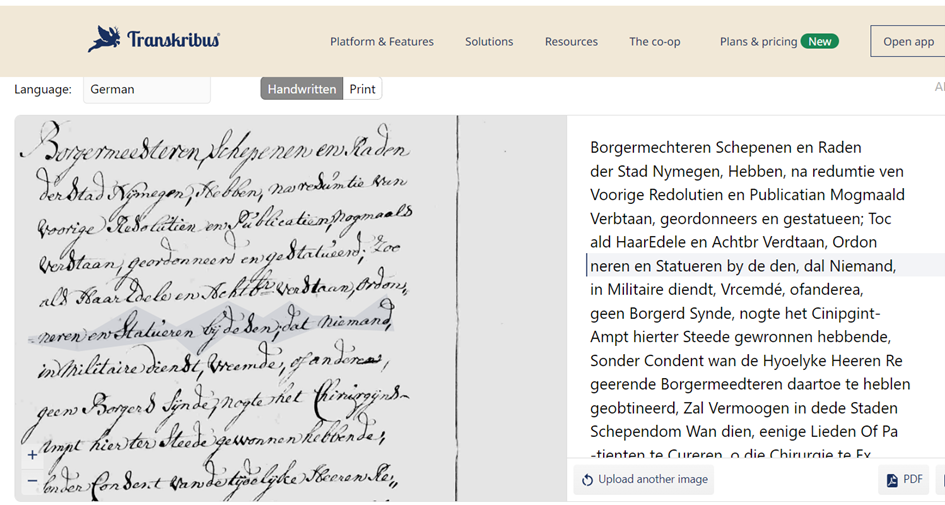 Transkribus
Platform & Features
Solutions
Resources
The co-op
Plans & pricing New
Open app
Language: German
Handwritten Print
Borgermeesteren, Schepenen en Raden
der Stad Nymegen, Hebben, na resumtie van
Voorige Resolutien en Publicatien, Nogmaals
Verstaan, geordonneerd en gestatueerd; Zoo
als Haar Edele en Achtbr Verstaan, Ordon,,
neren en Statueren by desen, dat Niemand,
in Militaire dienst, Vreemde, of anderen,
geen Borgers Sijnde, nogte het Chirurgijns-
Ampt hier ter Steede gewonnen hebbende,
Sonder Consent van de tydelyke Heeren Re,,
Borgermechteren Schepenen en Raden
der Stad Nymegen, Hebben, na redumtie ven
Voorige Redolutien en Publicatian Mogmaald
Verbtaan, geordonneers en gestatueen; Toc
ald HaarEdele en Achtbr Verdtaan, Ordon
neren en Statueren by de den, dal Niemand,
in Militaire diendt, Vrcemdé, ofanderea,
geen Borgerd Synde, nogte het Cinipgint-
Ampt hierter Steede gewronnen hebbende,
Sonder Condent wan de Hyoelyke Heeren Re
geerende Borgermeedteren daartoe te heblen
geobtineerd, Zal Vermoogen in dede Staden
Schependom Wan dien, eenige Lieden Of Pa
-tienten te Cureren, o die Chirurgie te Ex
Upload another image
PDF